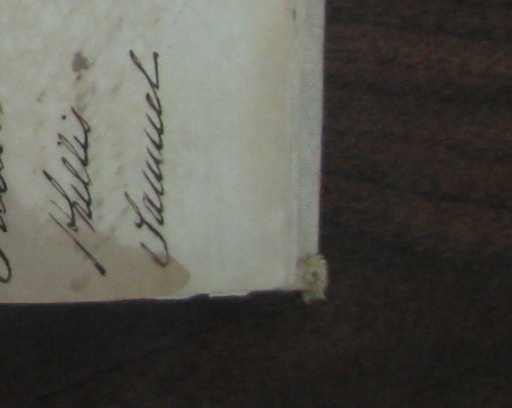 Phillis
Samuel